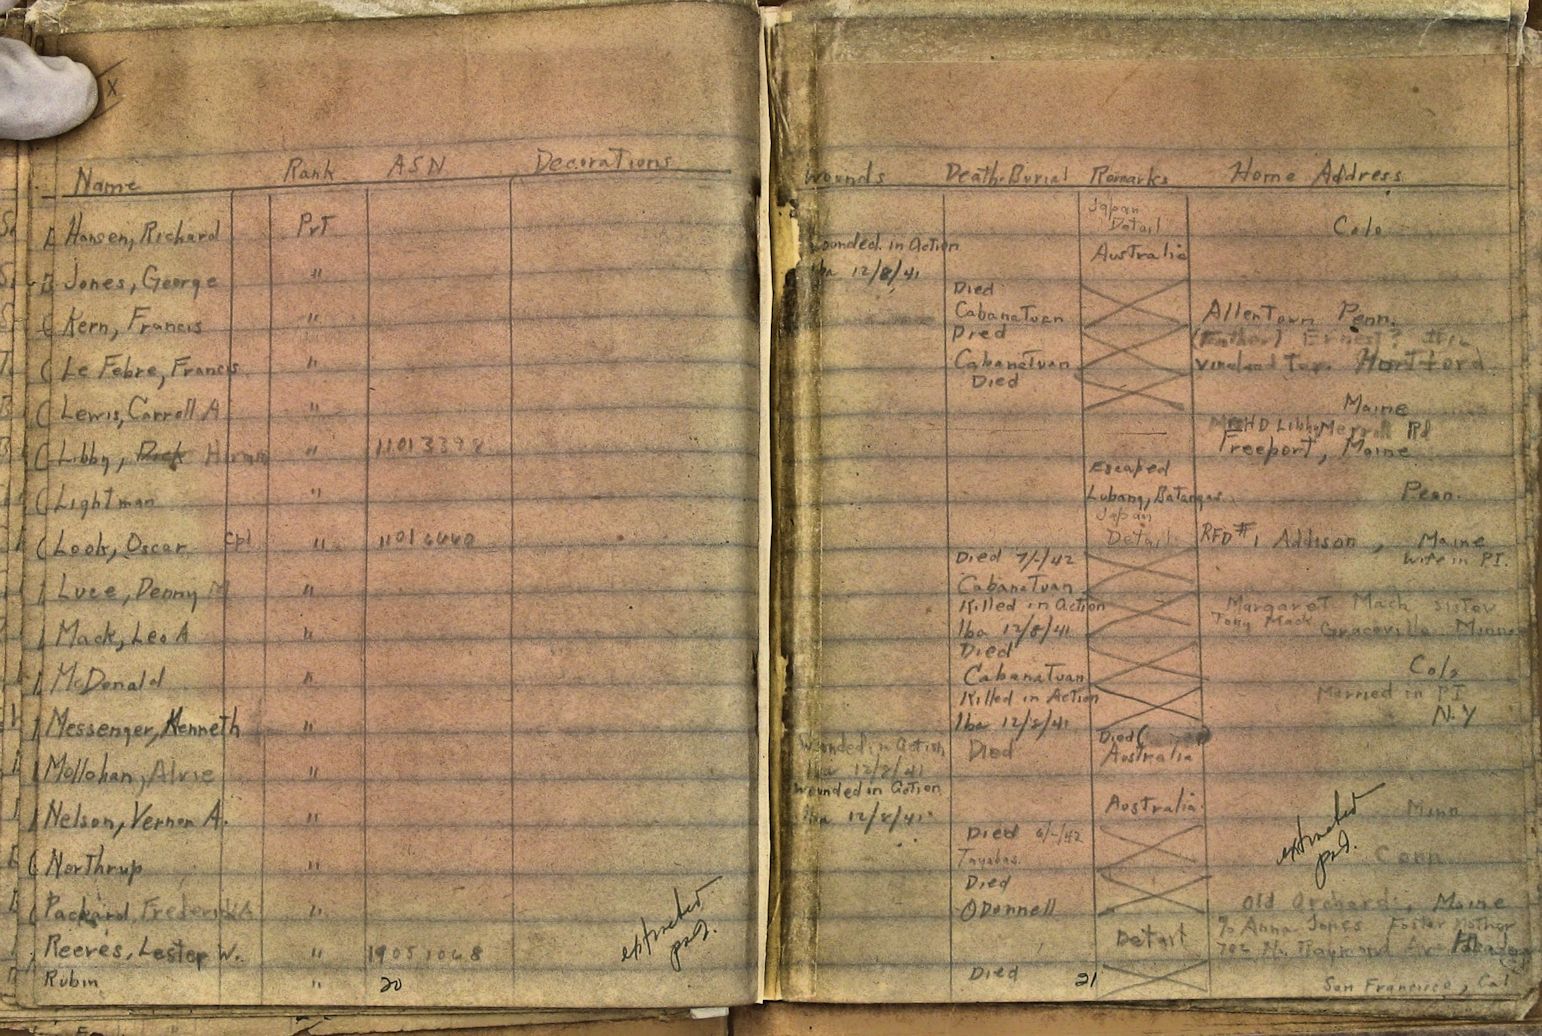 X
Name Rank ASN Decorations
Hansen, Richard Pvt
Jones, George "
Kern, Francis "
Le Febre, Francis "
Lewis, Carroll A "
Libby, Dick "
Lightman "
Look, Oscar Cpl "
Luce, Denny M "
Mack, Leo A "
McDonald "
Messenger, Kenneth "
Mollohan, Alvie "
Nelson, Vernon A. "
Northrup "
Packard, Frederick A "
Reeves, Lester W. " 19051068
Rubin "
extracted
prd.
20
Wounds Death-Burial Remarks Home Address
Japan
Detail Colo
Wounded in Action
Iba 12/8/41 Australia
Died
Cabanatuan Allentown, Penn.
Died (Father) Ernest?
Cabanatuan Vineland Ter. Hartford
Died
Maine
HD Libby Merrill Rd
Freeport, Maine
Escaped
Lubang, Batangas Penn.
Japan
Detail RFD #1 Addison, Maine
Died 7/-/42 wife in P.I.
Cabanatuan
Killed in Action Margaret Mack sister
Iba 12/8/41 Tony Mack Graceville Minn
Died
Cabanatuan Colo
Killed in Action Married in PI
Iba 12/8/41 N.Y
Wounded in Action Died Died
Iba 12/8/41 Australia
Wounded in Action
Iba 12/8/41 Australia Minn
Died 6/-/42
Tayabas Conn
Died
O'Donnell Old Orchard, Maine
Detail % Anna Jones Foster Mother
702 No. Raymond Ave Pasadena
Died San Francisco, Cal
extracted
prd.
21